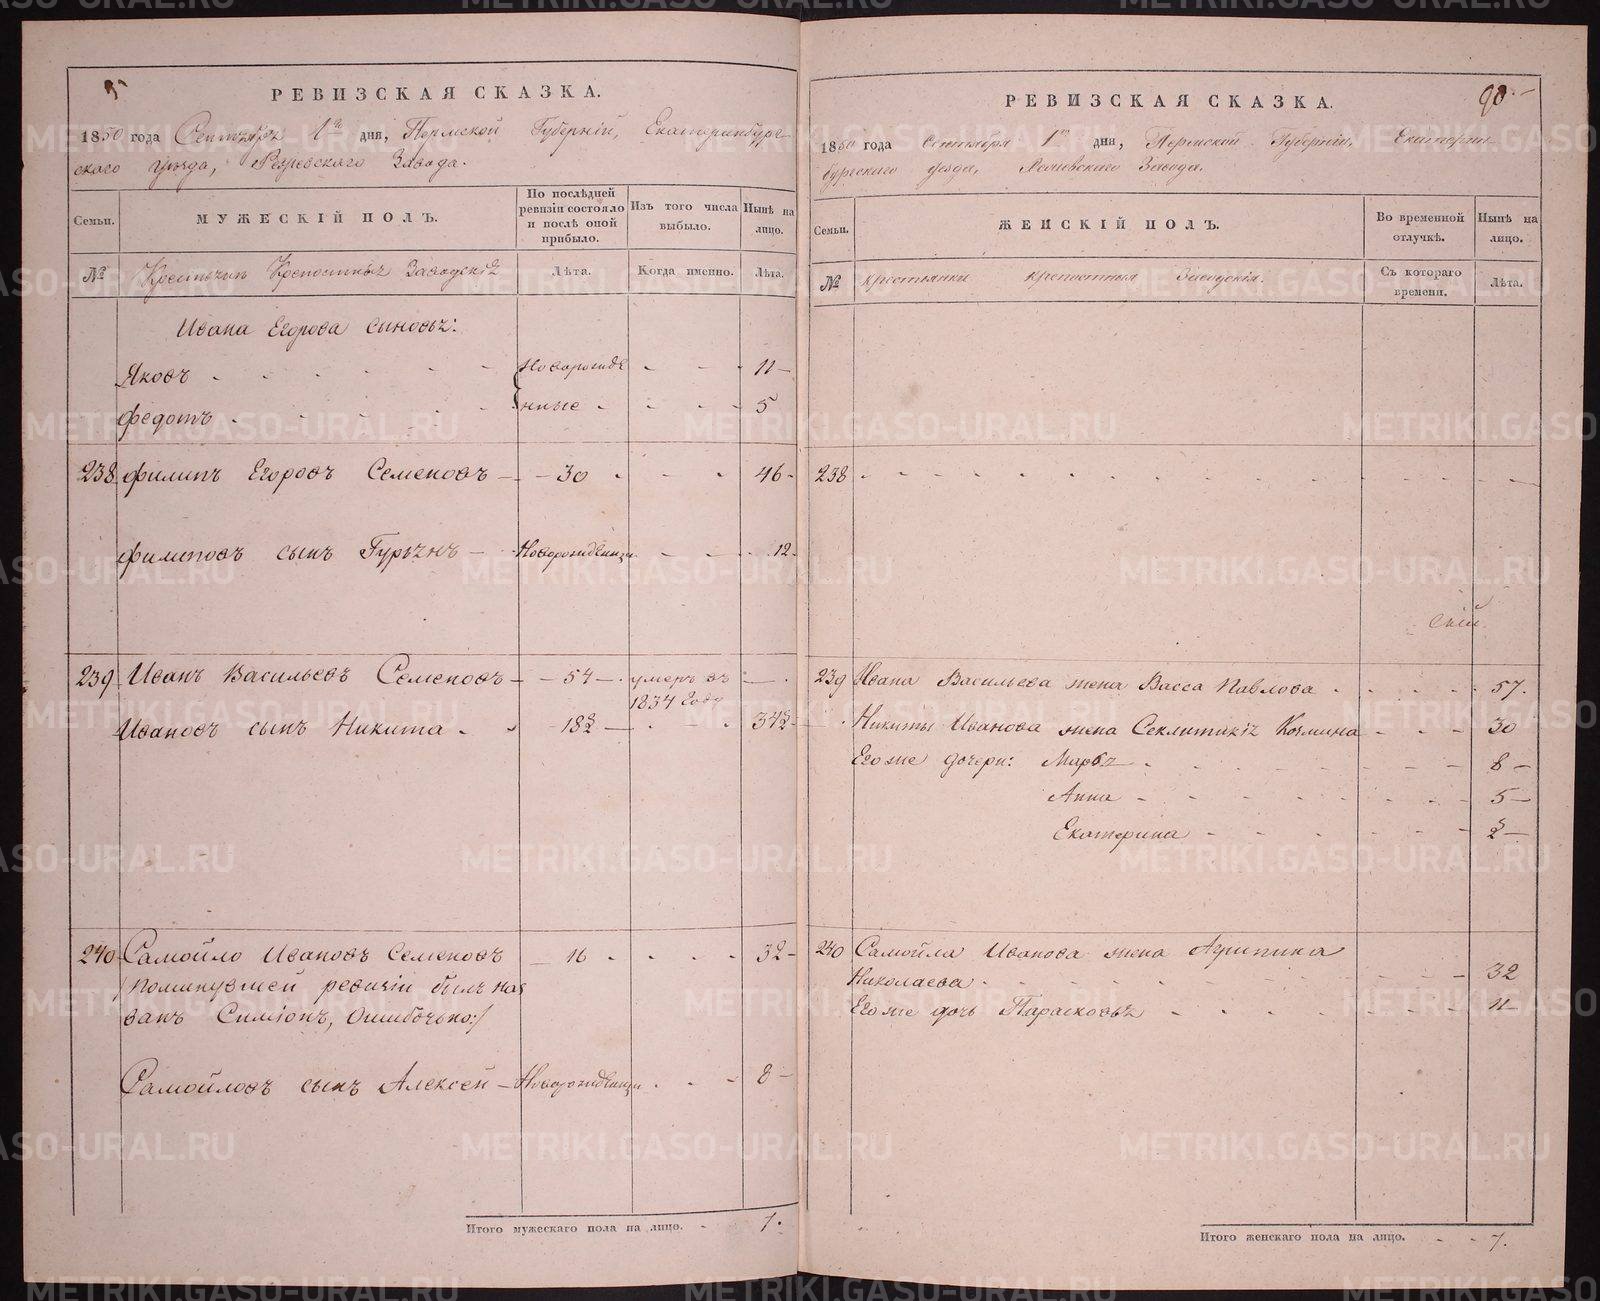 РЕВИЗСКАЯ СКАЗКА.
1850 года Сентября 1го дня, Пермской Губернiи, Екатеринбург-
скаго уѣзда, Режевскаго Завода.
Семьи.
МУЖЕСКІЙ ПОЛЪ.
По послѣдней ревизіи состояло и послѣ оной прибыло.
Изъ того числа выбыло.
Нынѣ на лицо.
№
Крестьянъ Крепостныхъ Заводскихъ
Лѣта.
Когда именно.
Лѣта.
Ивана Егорова сыновья:
Яковъ - - - - - Новорожде - - 11 -
Федотъ - - - - - нные - - - 5
238 Филипъ Егоровъ Семеновъ - 30 - - - 46 -
Филиповъ сынъ Гурьянъ - Новорожденный - - 12.
239 Иванъ Васильевъ Семеновъ - 54 - умеръ въ -
1834 году
Ивановъ сынъ Никита - - 18½ - - - 34½ -
240 Самойло Ивановъ Семеновъ - 16 - - - - 32 -
/:Поминувшей ревизіи былъ наз
ванъ Симіонъ, ошибочьно:/
Самойловъ сынъ Алексей - Новорожденный - - - 8 -
Итого мужескаго пола на лицо. - 7.
90.
РЕВИЗСКАЯ СКАЗКА.
1850 года Сентября 1го дня, Пермской Губернiи, Екатерин-
бургскаго уезда, Режевскаго Завода.
Семьи.
ЖЕНСКІЙ ПОЛЪ.
Во временной отлучкѣ.
Нынѣ на лицо.
№
Крестьянки крепостныя Заводскія.
Съ котораго времени.
Лѣта.
238 - - - - - -
239 Ивана Васильева жена Васса Павлова - - - - 57.
Никиты Иванова жена Секлитикія Козмина - - - 30
Егоже дочери: Марья - - - - - 8 -
Анна - - - - - 5 -
Екатерина - - - - - ½ -
240 Самойла Иванова жена Агрипина
Николаева - - - - - 32
Егоже дочь Парасковья - - - - - 11 -
Итого женскаго пола на лицо. - - 7.
METRIKI.GASO-URAL.RU